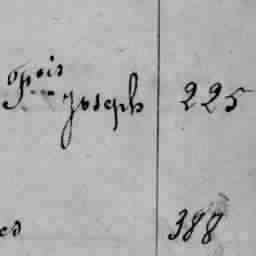 Joseph 225
es 388